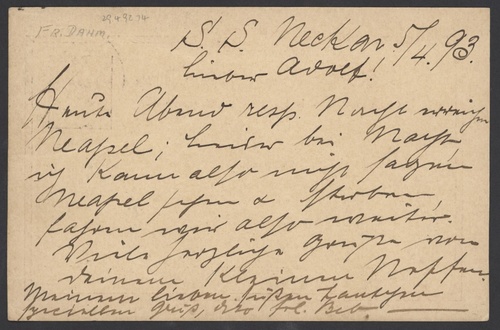 S. S. Neckar. 5/4. 93.
Lieber Adolf!
Heute Abend resp. Nacht erreichen
Neapel; leider bei Nacht,
ich kann also nicht sagen
Neapel sehen & sterben
fahren wir also weiter.
Viele herzliche Grüße von
Deinem kleinen Neffen.
Meinem lieben Tantchen
speciellen Gruß,